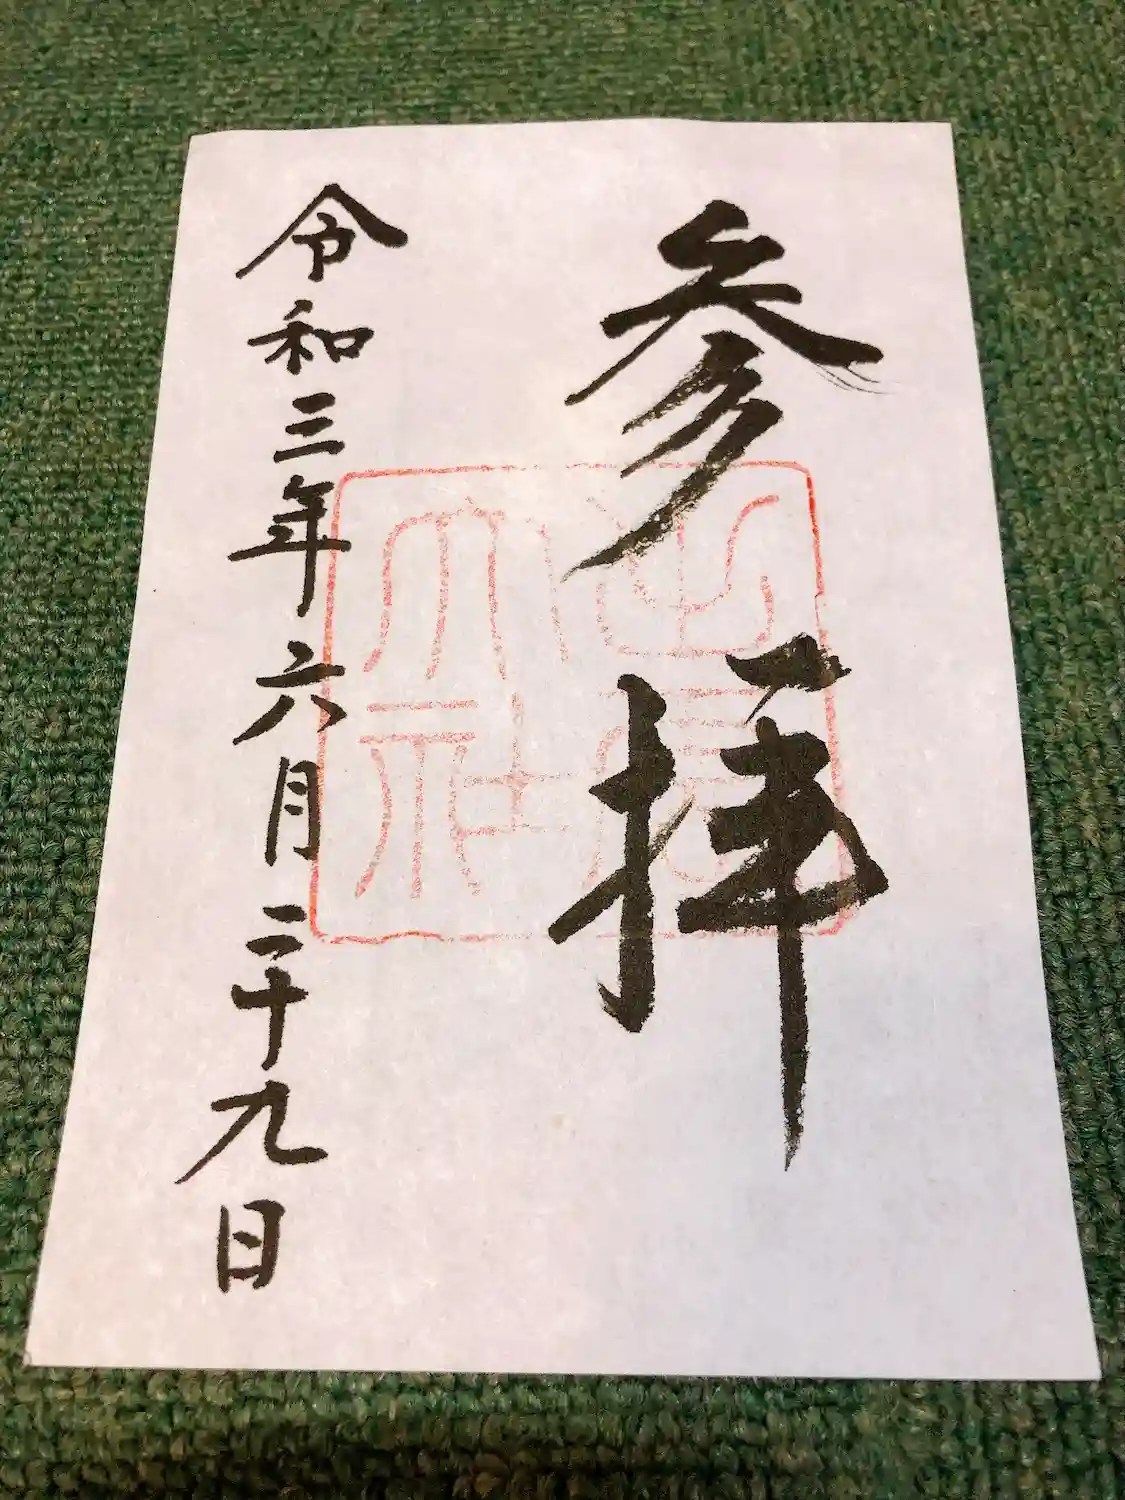 参拝
令和三年六月二十九日